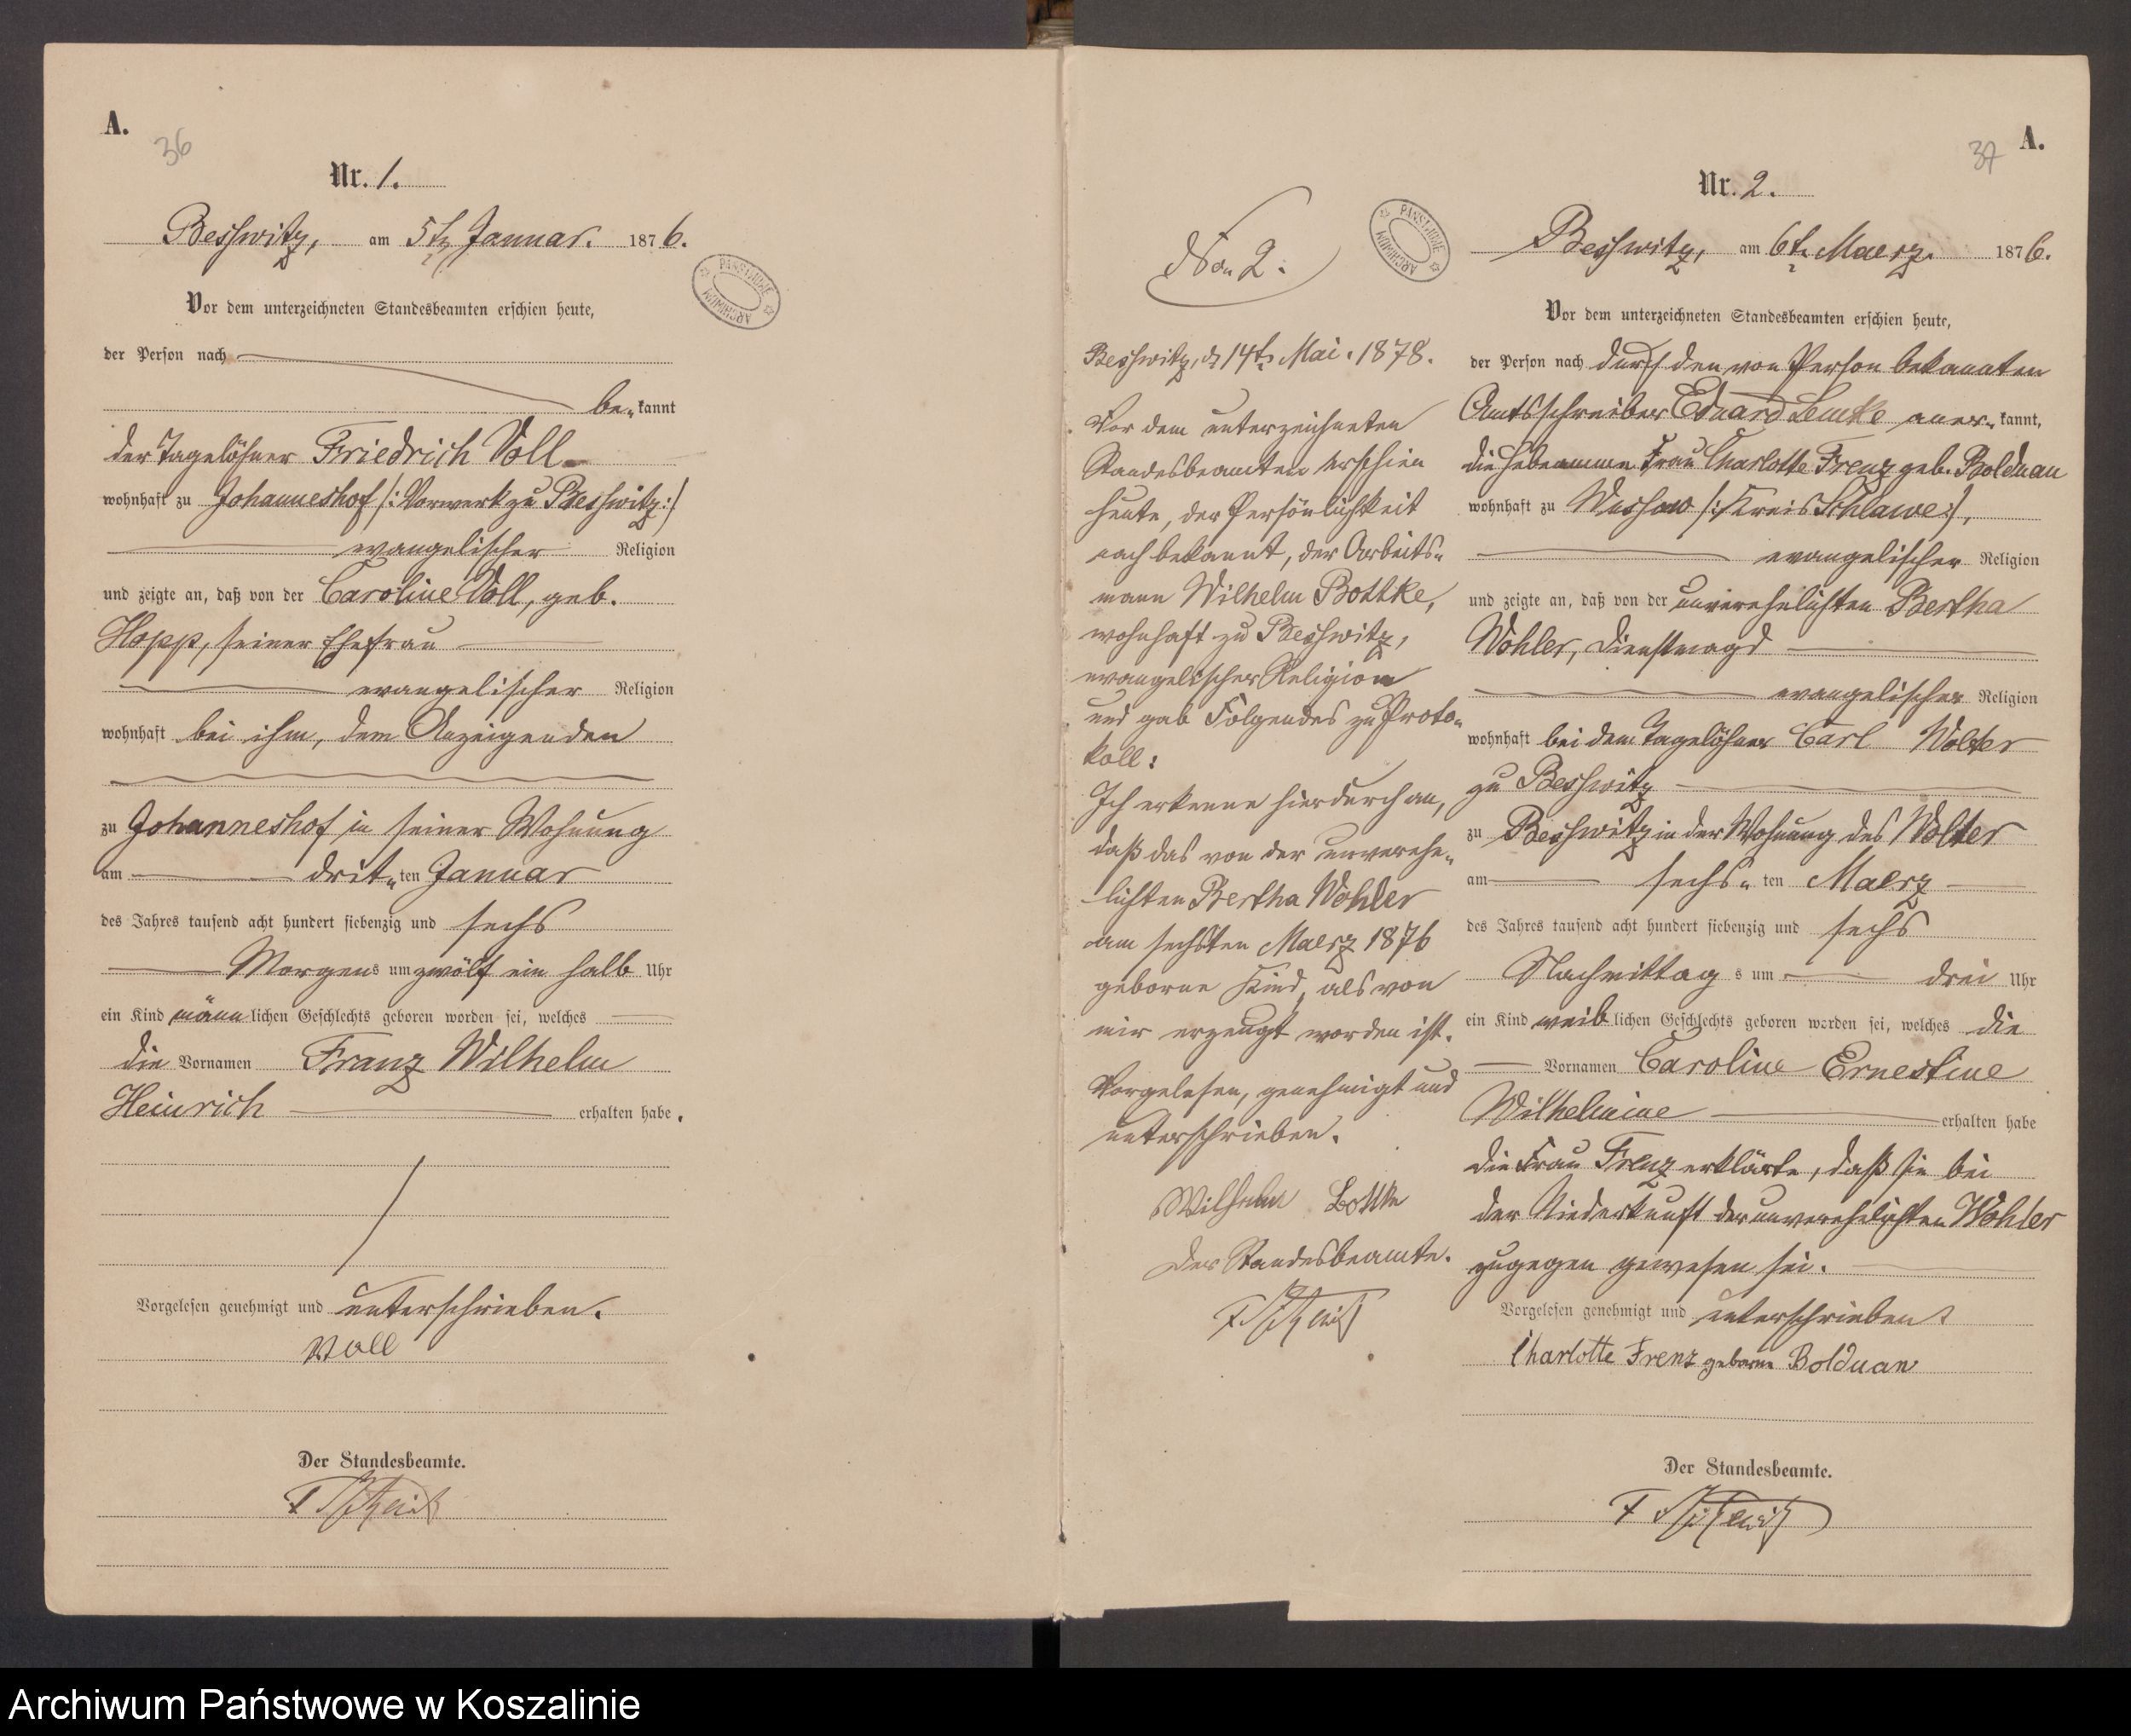 A.
36
Nr. 1.
Besswitz, am 5ten Januar. 1876.
PANSTWOWE ARCHIWUM
Vor dem unterzeichneten Standesbeamten erschien heute,
der Person nach
be- kannt
der Tagelöhner Friedrich Voll
wohnhaft zu Johanneshof /: Vorwerk zu Besswitz :/
evangelischer Religion
und zeigte an, daß von der Caroline Voll, geb.
Hopp, seiner Ehefrau
evangelischer Religion
wohnhaft bei ihm, dem Anzeigenden
zu Johanneshof in seiner Wohnung
am drit- ten Januar
des Jahres tausend acht hundert siebenzig und sechs
Morgens um zwölf ein halb Uhr
ein Kind männlichen Geschlechts geboren worden sei, welches
die Vornamen Franz Wilhelm
Heinrich erhalten habe.
Vorgelesen genehmigt und unterschrieben.
Voll
Der Standesbeamte.
No. 2.
PANSTWOWE ARCHIWUM
Besswitz, d. 14t. Mai. 1878.
Vor dem unterzeichneten
Standesbeamten erschien
heute, der Persönlichkeit
nach bekannt, der Arbeits-
mann Wilhelm Bottke,
wohnhaft zu Besswitz,
evangelischer Religion
und gab Folgendes zu Proto-
koll:
Ich erkenne hierdurch an,
daß das von der unverehe-
lichten Bertha Wohler
am sechsten Maerz 1876
geborne Kind, als von
mir erzeugt worden ist.
Vorgelesen, genehmigt und
unterschrieben.
Wilhelm Bottke
Der Standesbeamte.
A.
37
Nr. 2.
Besswitz, am 6t. Maerz. 1876.
Vor dem unterzeichneten Standesbeamten erschien heute,
der Person nach durch den von Person bekannten
Amtsschreiber Eduard Lemke aner- kannt,
die Hebeamme Frau Charlotte Frenz geb. Bolduan
wohnhaft zu Wussow /: Kreis Schlawe :/,
evangelischer Religion
und zeigte an, daß von der unverehelichten Bertha
Wohler, Dienstmagd
evangelischer Religion
wohnhaft bei dem Tagelöhner Carl Wolter
zu Besswitz
zu Besswitz in der Wohnung des Wolter
am sechs- ten Maerz
des Jahres tausend acht hundert siebenzig und sechs
Nachmittags um drei Uhr
ein Kind weiblichen Geschlechts geboren worden sei, welches die
Vornamen Caroline Ernestine
Wilhelmine erhalten habe
die Frau Frenz erklärte, daß sie bei
der Niederkunft der unverehelichten Wohler
zugegen gewesen sei.
Vorgelesen genehmigt und unterschrieben
Charlotte Frenz geborne Bolduan
Der Standesbeamte.
Archiwum Państwowe w Koszalinie